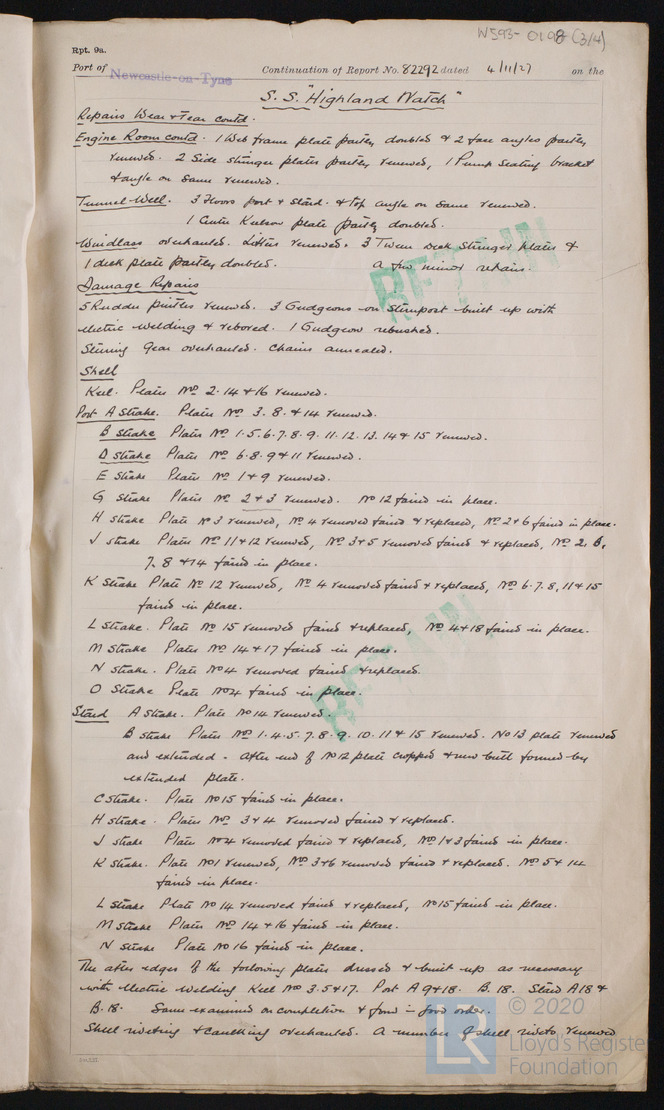 W593-0198 (3/4)
Rpt. 9a.
Port of Newcastle-on-Tyne Continuation of Report No. 82292 dated 4/11/27 on the
S.S. "Highland Watch"
Repairs Wear & Tear contd.
Engine Room contd. 1 Web frame plate partly doubled & 2 face angles partly
renewed. 2 Side stringer plates partly renewed, 1 Pump seating bracket
& angle on same renewed.
Tunnel Well. 3 floors port & starb. & top angle on same renewed.
1 Centre Keelson plate partly doubled.
Windlass overhauled. Lifters renewed. 3 Tween Deck Stringer plates &
1 deck plate partly doubled. a few minor repairs.
RETAIN
Damage Repairs
5 Rudder pintles renewed. 3 Gudgeons on sternpost built up with
electric welding & rebored. 1 Gudgeon rebushed.
Steering Gear overhauled. Chains annealed.
Shell
Keel. Plates Nos 2. 14 & 16 renewed.
Port A Strake. Plates Nos 3. 8. & 14 renewed.
B strake Plates Nos 1. 5. 6. 7. 8. 9. 11. 12. 13. 14 & 15 renewed.
D strake Plates Nos 6. 8. 9 & 11 renewed.
E Strake Plates Nos 1 & 9 renewed.
G Strake Plates Nos 2 & 3 renewed. No 12 faired in place.
H strake Plate No 3 renewed, No 4 removed faired & replaced, Nos 2 & 6 faired in place.
J strake Plates Nos 11 & 12 renewed, Nos 3 & 5 removed faired & replaced, Nos 2. 6.
7. 8 & 14 faired in place.
K Strake Plate No 12 renewed, No 4 removed faired & replaced, Nos 6. 7. 8, 11 & 15
faired in place.
L Strake. Plate No 15 removed faired & replaced, Nos 4 & 18 faired in place.
M Strake Plates Nos 14 & 17 faired in place.
N strake. Plate No 4 removed faired & replaced.
RETAIN
O Strake Plate No 4 faired in place.
Starb A Strake. Plate No 14 renewed.
B strake Plates Nos 1. 4. 5. 7. 8. 9. 10. 11 & 15 renewed. No 13 plate renewed
and extended. After end of No 12 plate cropped & new butt formed by
extended plate.
C strake. Plate No 15 faired in place.
H strake. Plates Nos 3 & 4 removed faired & replaced.
J strake Plate No 4 removed faired & replaced, Nos 1 & 3 faired in place.
K Strake. Plate No 1 renewed, Nos 3 & 6 removed faired & replaced. Nos 5 & 14
faired in place.
L Strake Plate No 14 removed faired & replaced, No 15 faired in place.
M Strake Plates Nos 14 & 16 faired in place.
N Strake Plate No 16 faired in place.
The after edges of the following plates dressed & built up as necessary
with electric welding Keel Nos 3. 5 & 17. Port A 9 & 18. B. 18. Starb A 18 &
B. 18. Same examined on completion & found in good order.
Shell riveting & caulking overhauled. A number of shell rivets renewed
LR © 2020
Lloyd's Register
Foundation